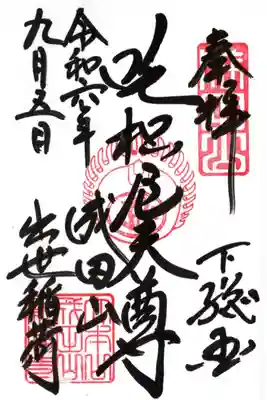 奉拝
下総国
吒枳尼天尊
成田山
出世稲荷
令和六年
九月五日